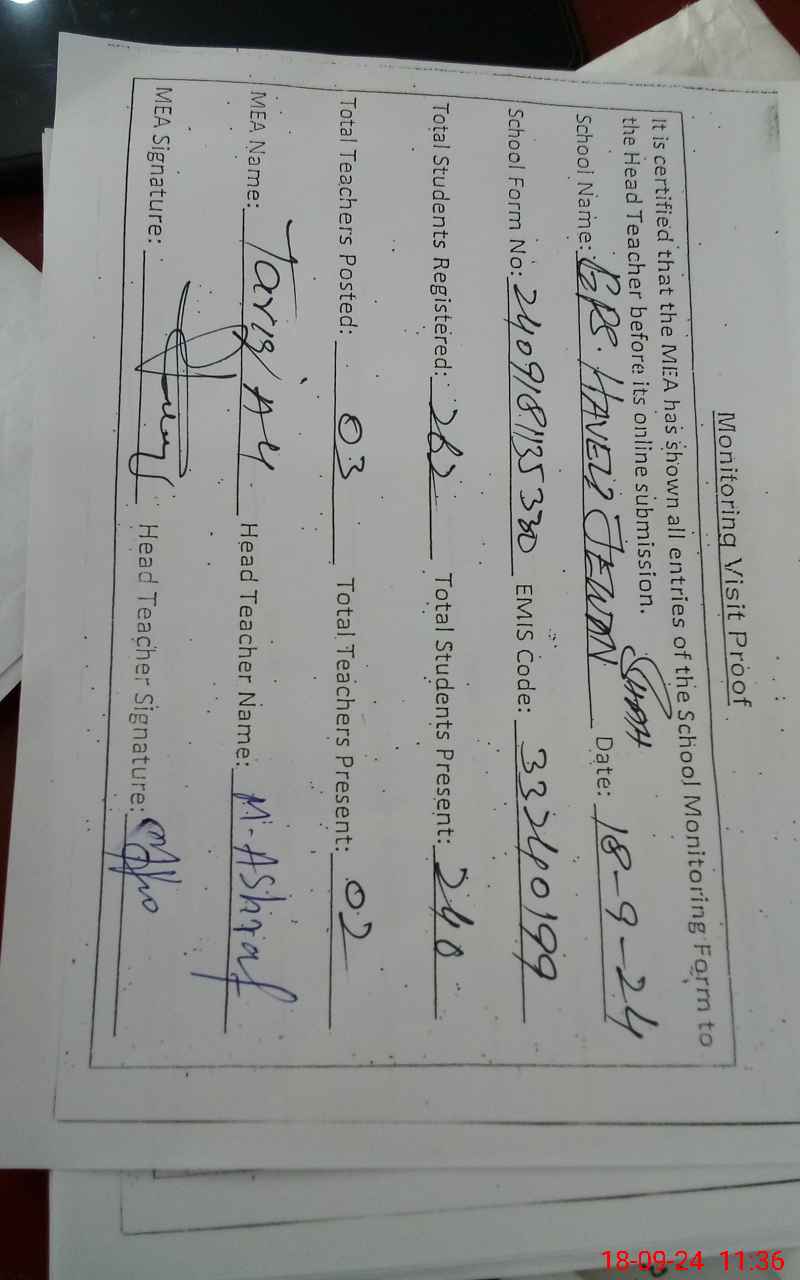 Monitoring Visit Proof
It is certified that the MEA has shown all entries of the School Monitoring Form to
the Head Teacher before its online submission.
School Name: GPS. HAVELI JEWAN SHAH Date: 18-9-24
School Form No: EMIS Code: 33240199
Total Students Registered: 262 Total Students Present: 240
Total Teachers Posted: 03 Total Teachers Present: 02
MEA Name: Tariq Head Teacher Name: M. Ashraf
MEA Signature: Head Teacher Signature:
18-09-24 11:36